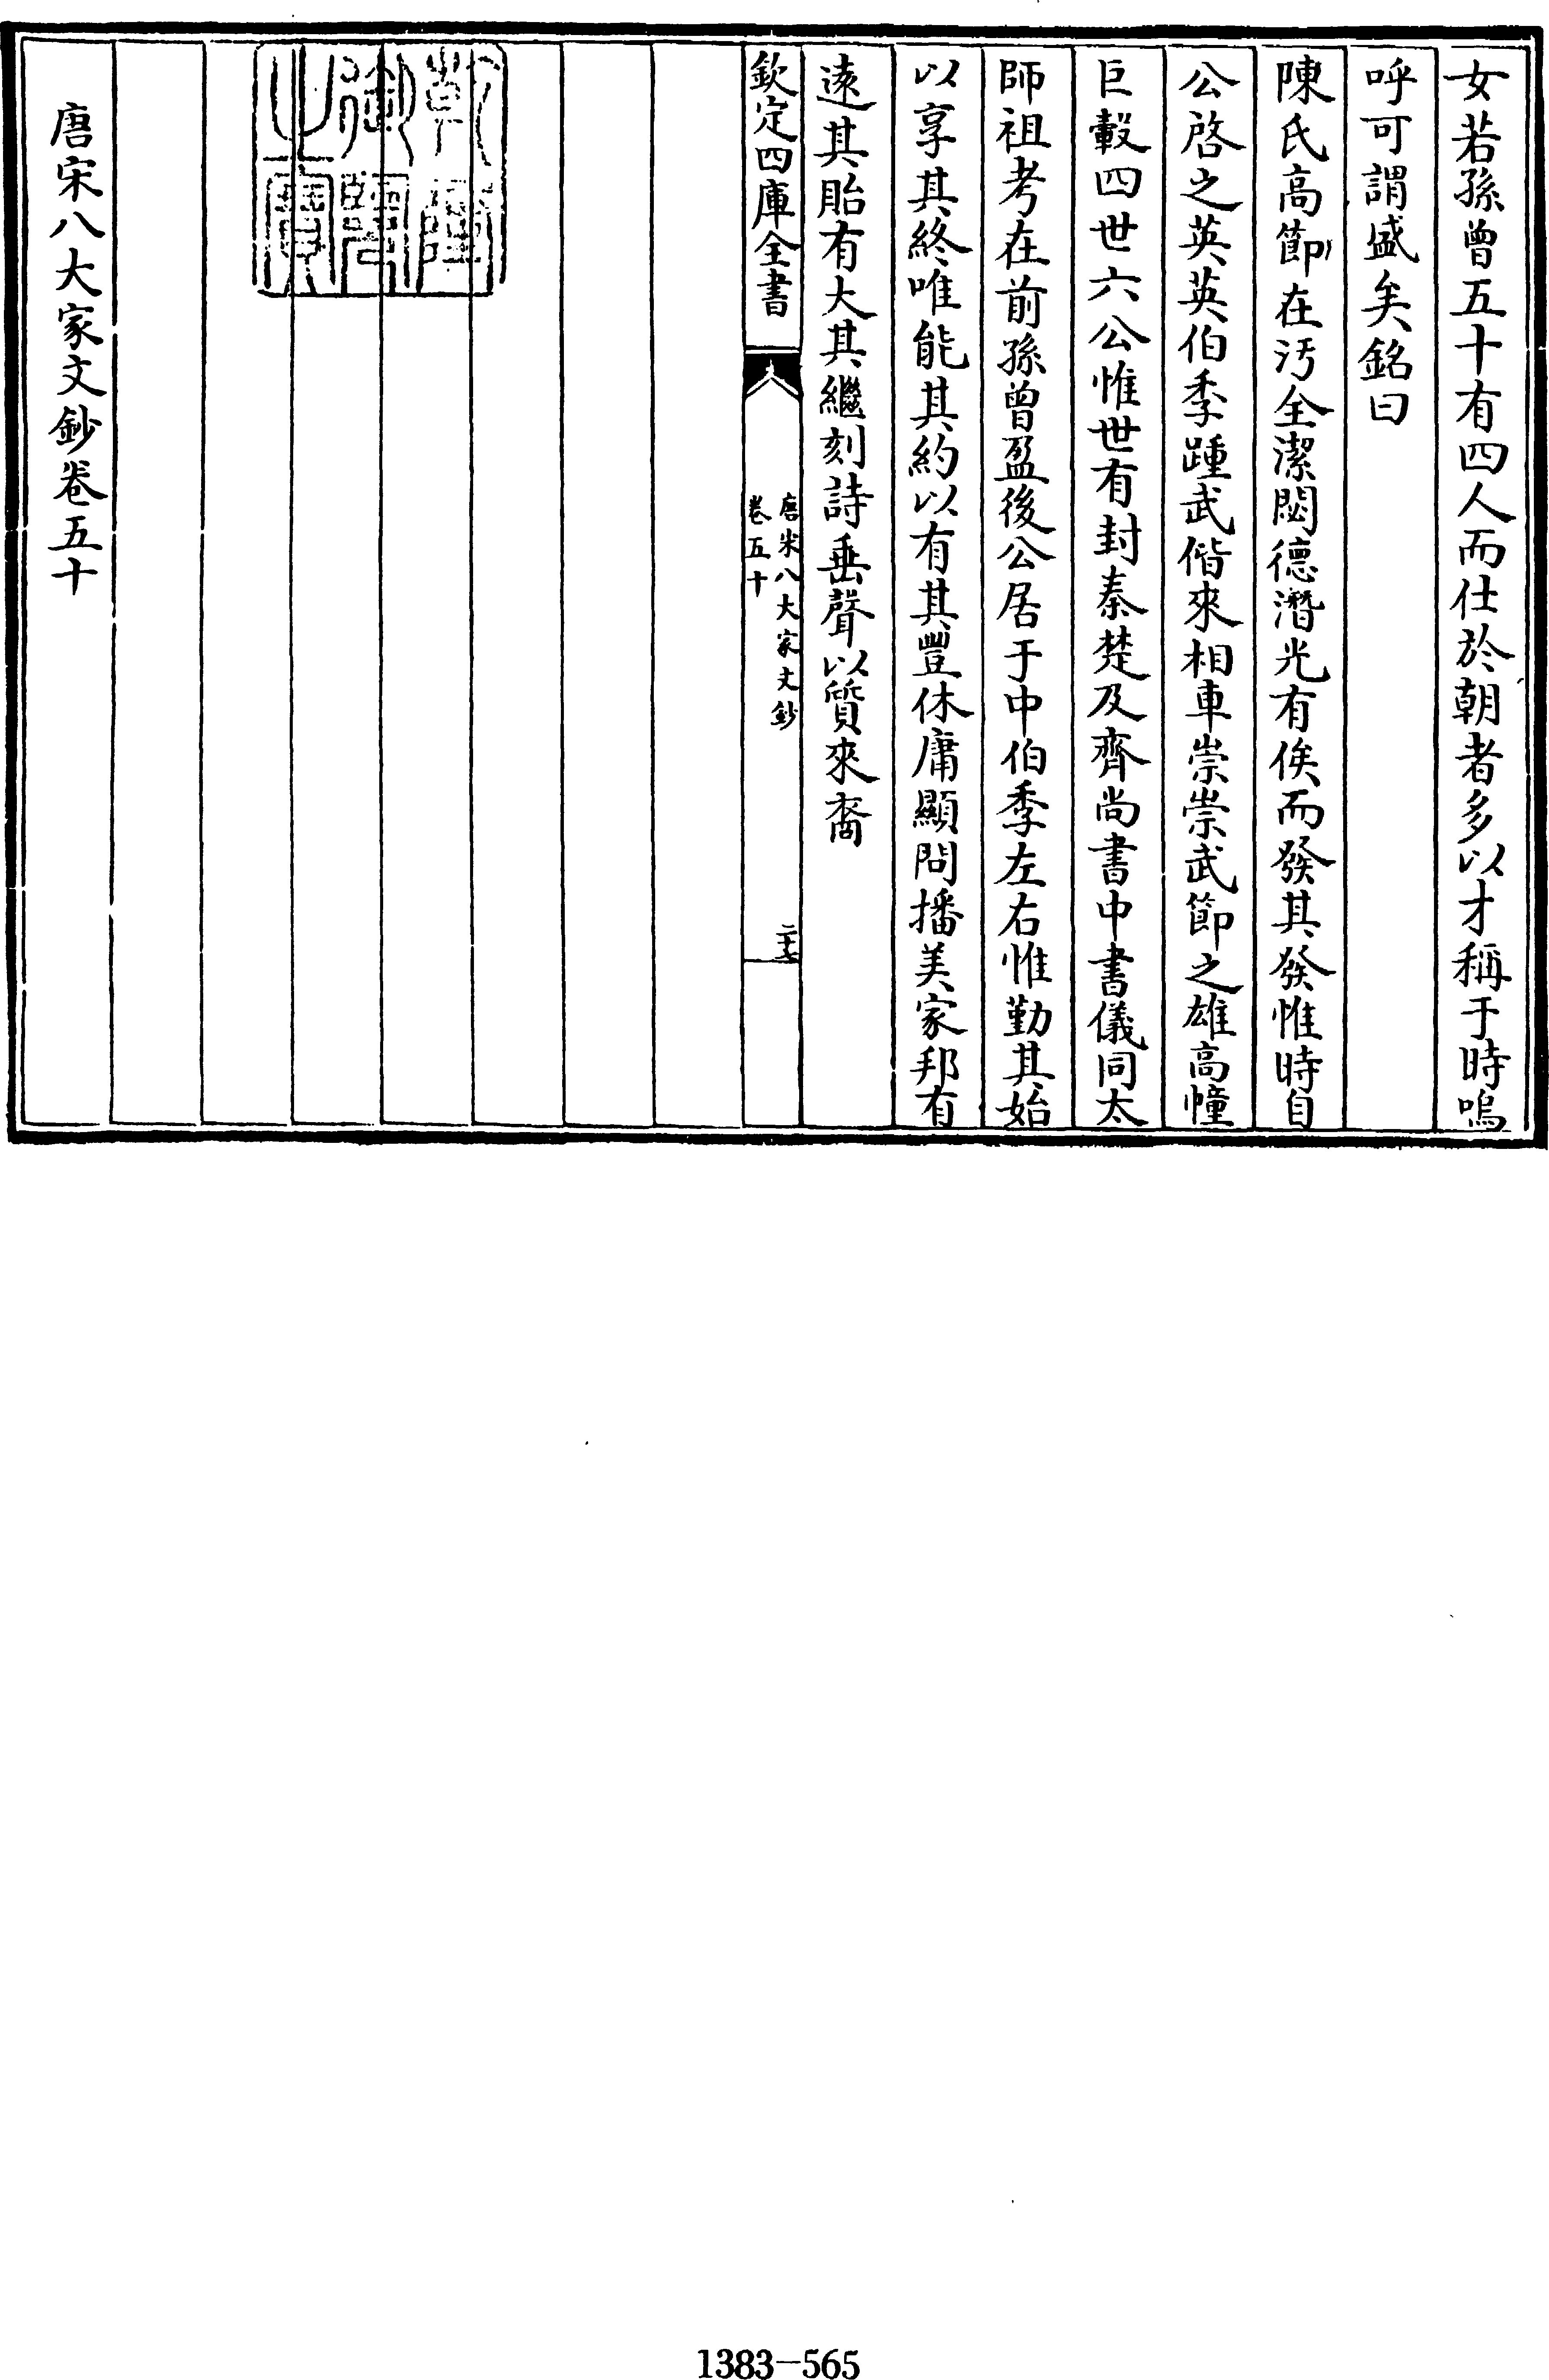 女若孫曾五十有四人而仕於朝者多以才稱于時嗚
呼可謂盛矣銘曰
陳氏高節在汚全潔閟德潛光有俟而發其發惟時自
公啓之英英伯季踵武偕來相車崇崇武節之雄高幢
巨轂四世六公惟世有封秦楚及齊尚書中書儀同太
師祖考在前孫曾盈後公居于中伯季左右惟勤其始
以享其終唯能其約以有其豐休庸顯問播美家邦有
遠其貽有大其繼刻詩垂聲以質來裔
欽定四庫全書
唐宋八大家文鈔
卷五十
二十七
乾隆御覽之寶
唐宋八大家文鈔卷五十
1383-565